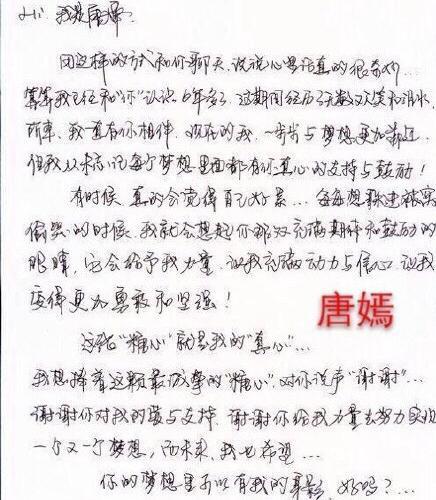 Hi! 我是唐嫣.
用这样的方式和你聊天、说说心里话真的很奇妙...
算算我已经和“你”认识6年多了. 这期间经历了无数欢笑和泪水,
所幸、我一直有你相伴. 现在的我, 一步步与梦想更加靠近.
但我从未忘记每个梦想里面都有你真心的支持与鼓励!
有时候 真的会觉得自己好累... 每每想躲进被窝
偷哭的时候. 我就会想起你那双充满期待和鼓励的
眼睛, 它会给予我力量、让我充满动力与信心. 让我
变得更加勇敢和坚强!
唐嫣
这拾“糖心”就是我的“真心”...
我想捧着这颗最诚挚的“糖心”. 对你说声“谢谢”...
谢谢你对我的爱与支持. 谢谢你给我力量去努力实现
一个又一个梦想, 而未来, 我也希望...
你的梦想里可以有我的身影, 好吗?...